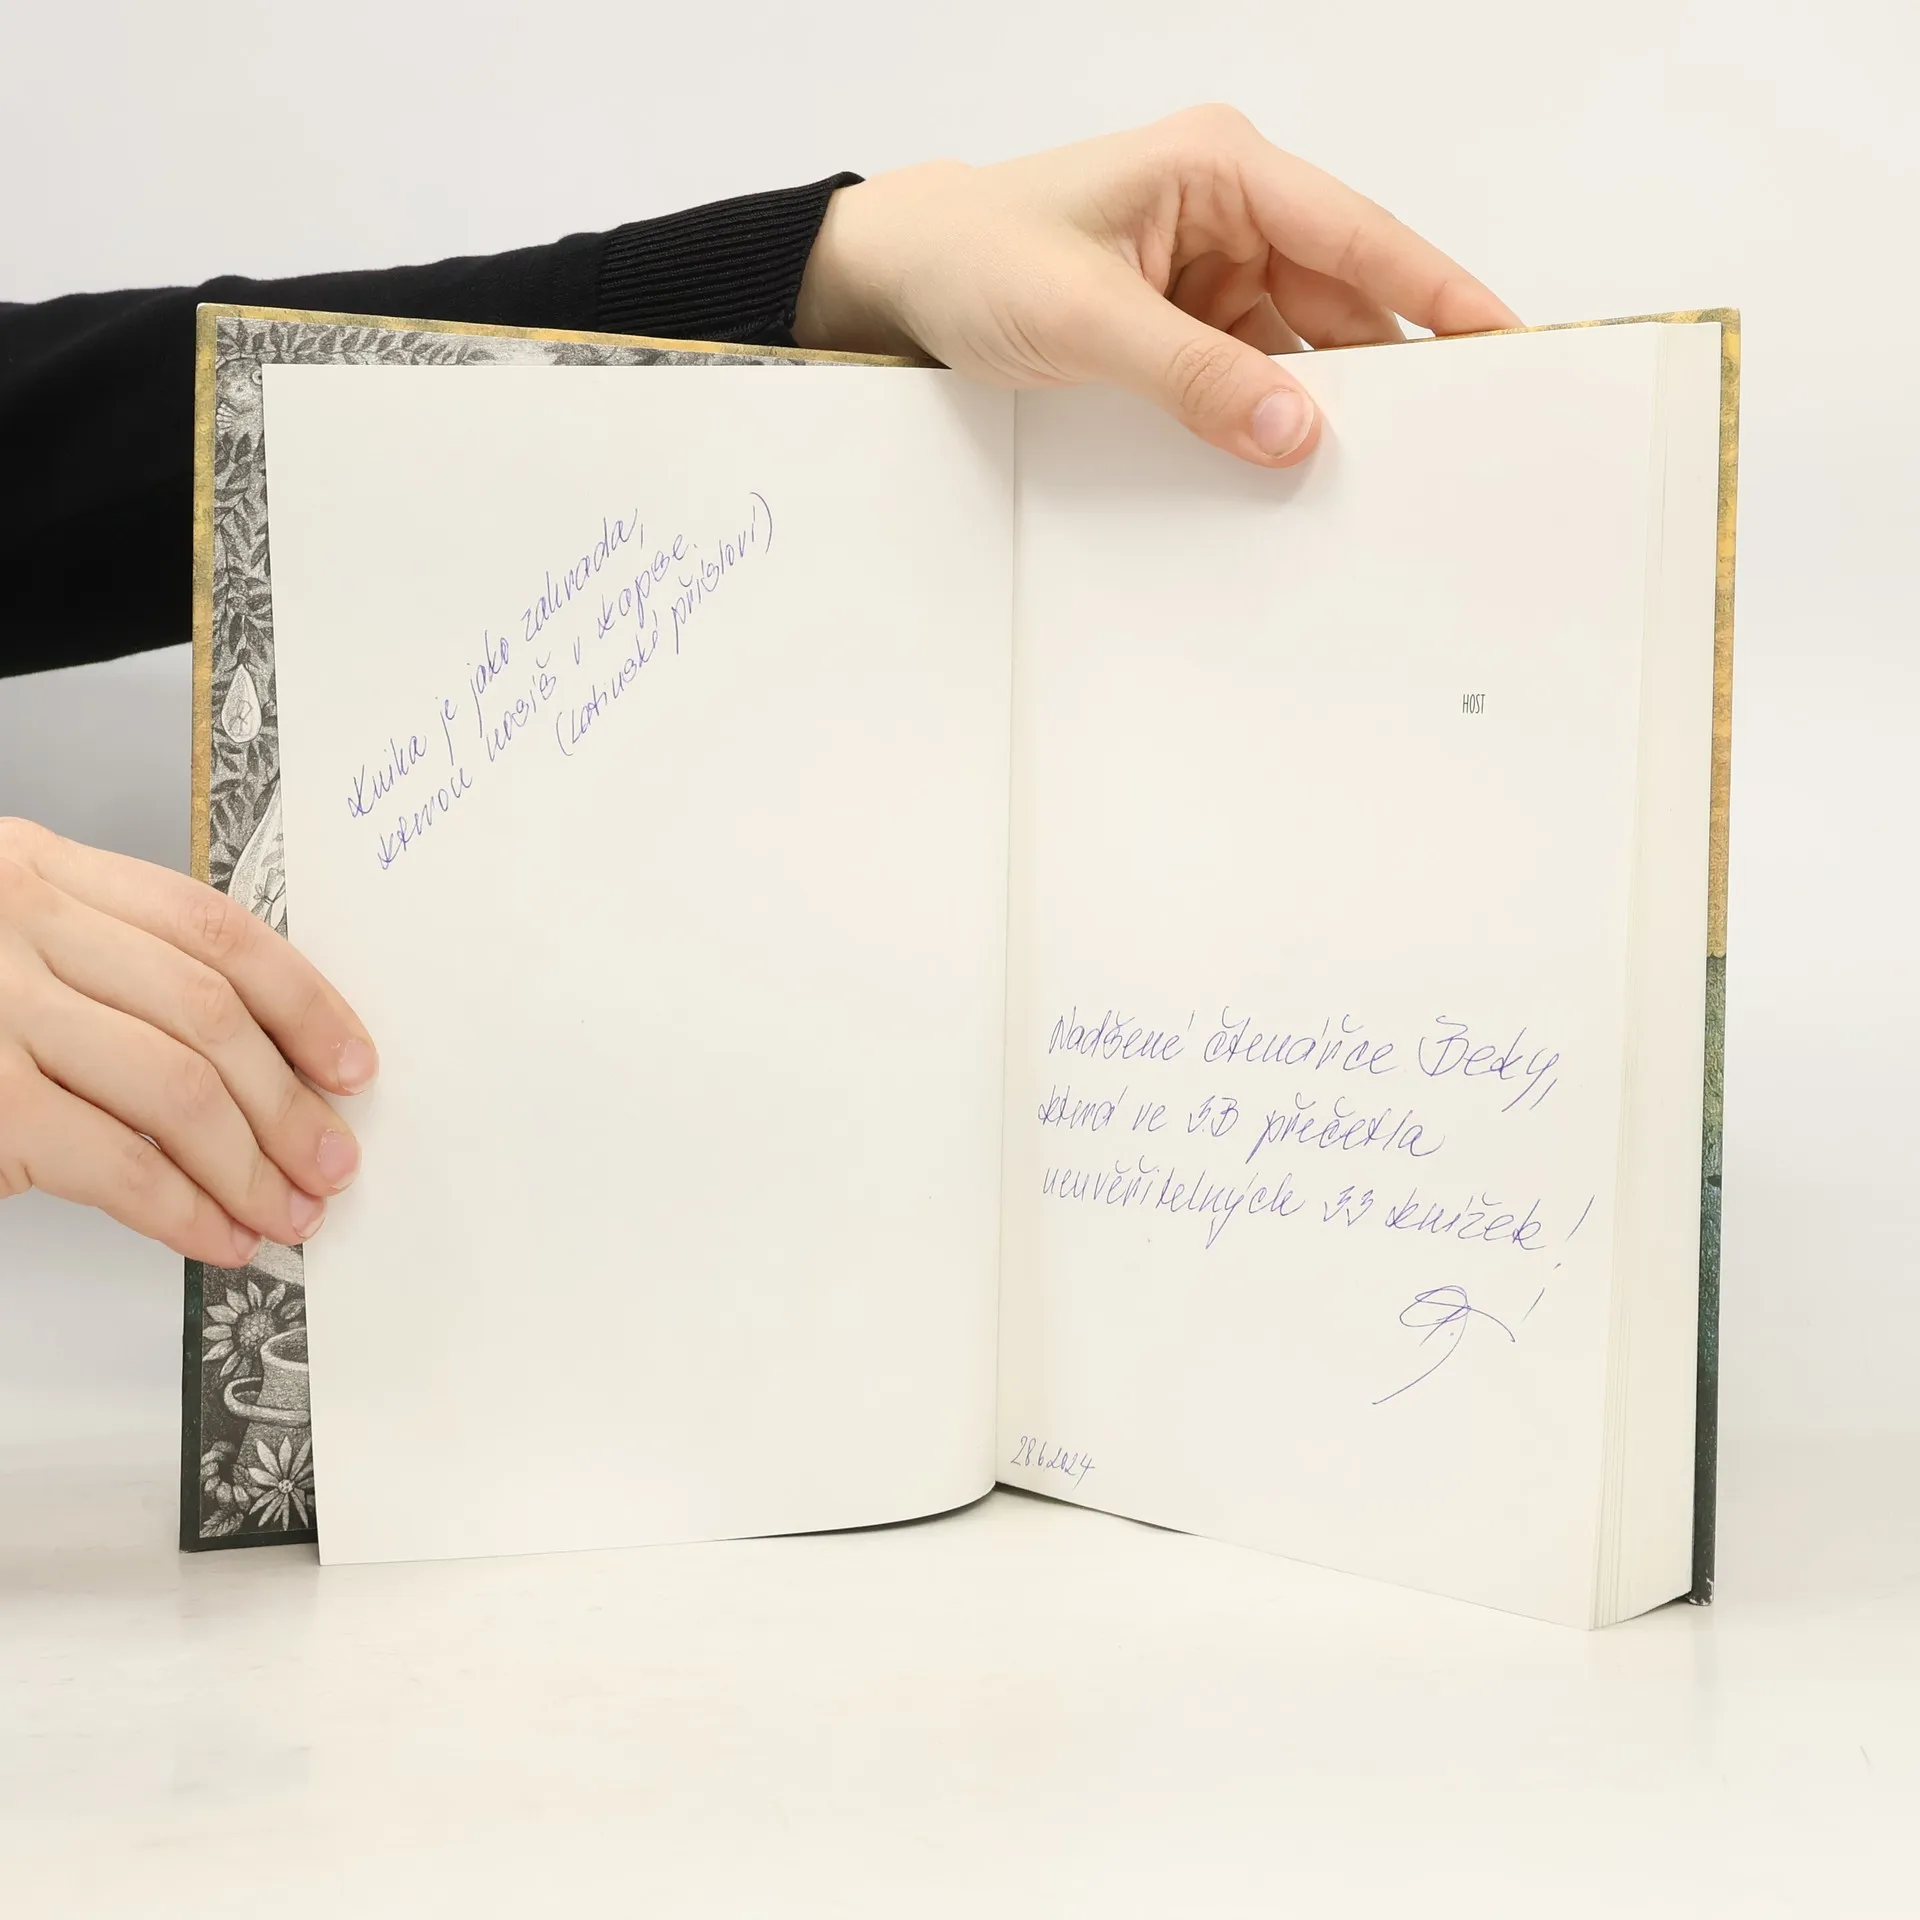 Kniha je jako zahrada,
kterou nosíš v kapse.
(Latinské přísloví)
HOST
Nadšené čtenářce Beky,
která ve 3.B přečetla
neuvěřitelných 33 knížek!
28.6.2024